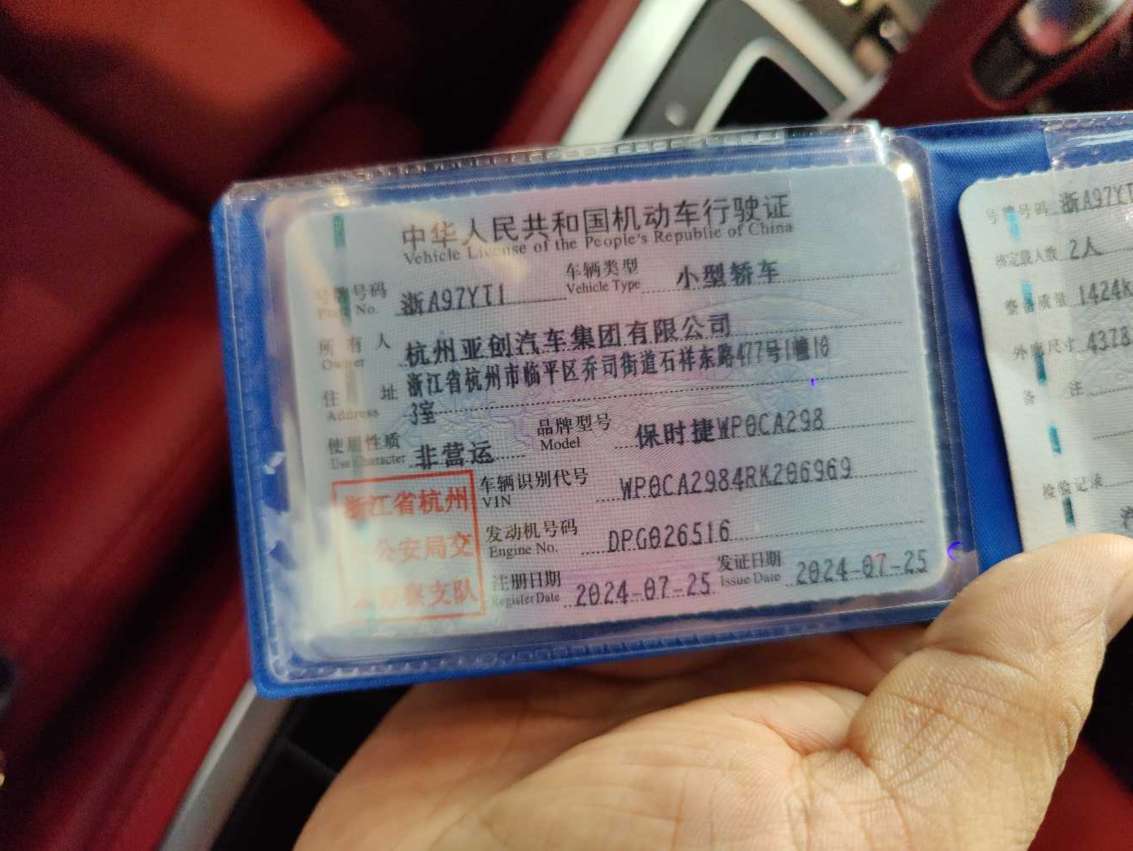 中华人民共和国机动车行驶证
Vehicle License of the People's Republic of China
号牌号码 浙A97YT1 车辆类型 小型轿车
Plate No. Vehicle Type
所有人 杭州亚创汽车集团有限公司
Owner
住址 浙江省杭州市临平区乔司街道石祥东路477号1幢10
Address 3室
使用性质 非营运 品牌型号 保时捷WP0CA298
Use Character Model
浙江省杭州
公安局交
警察支队
车辆识别代号 WP0CA2984RK206969
VIN
发动机号码 DPG026516
Engine No.
注册日期 2024-07-25 发证日期 2024-07-25
Register Date Issue Date
号牌号码 浙A97YT
核定载人数 2人
整备质量 1424k
外廓尺寸 4378
备注
检验记录